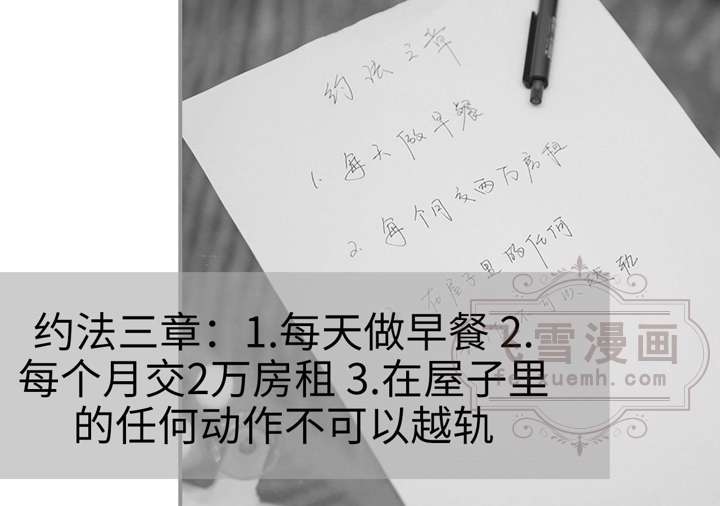 约法三章
1. 每天做早餐
2. 每个月交两万房租
在屋子里的任何
不可以越轨
约法三章：1.每天做早餐 2.
每个月交2万房租 3.在屋子里
的任何动作不可以越轨
飞雪漫画
feixuemh.com